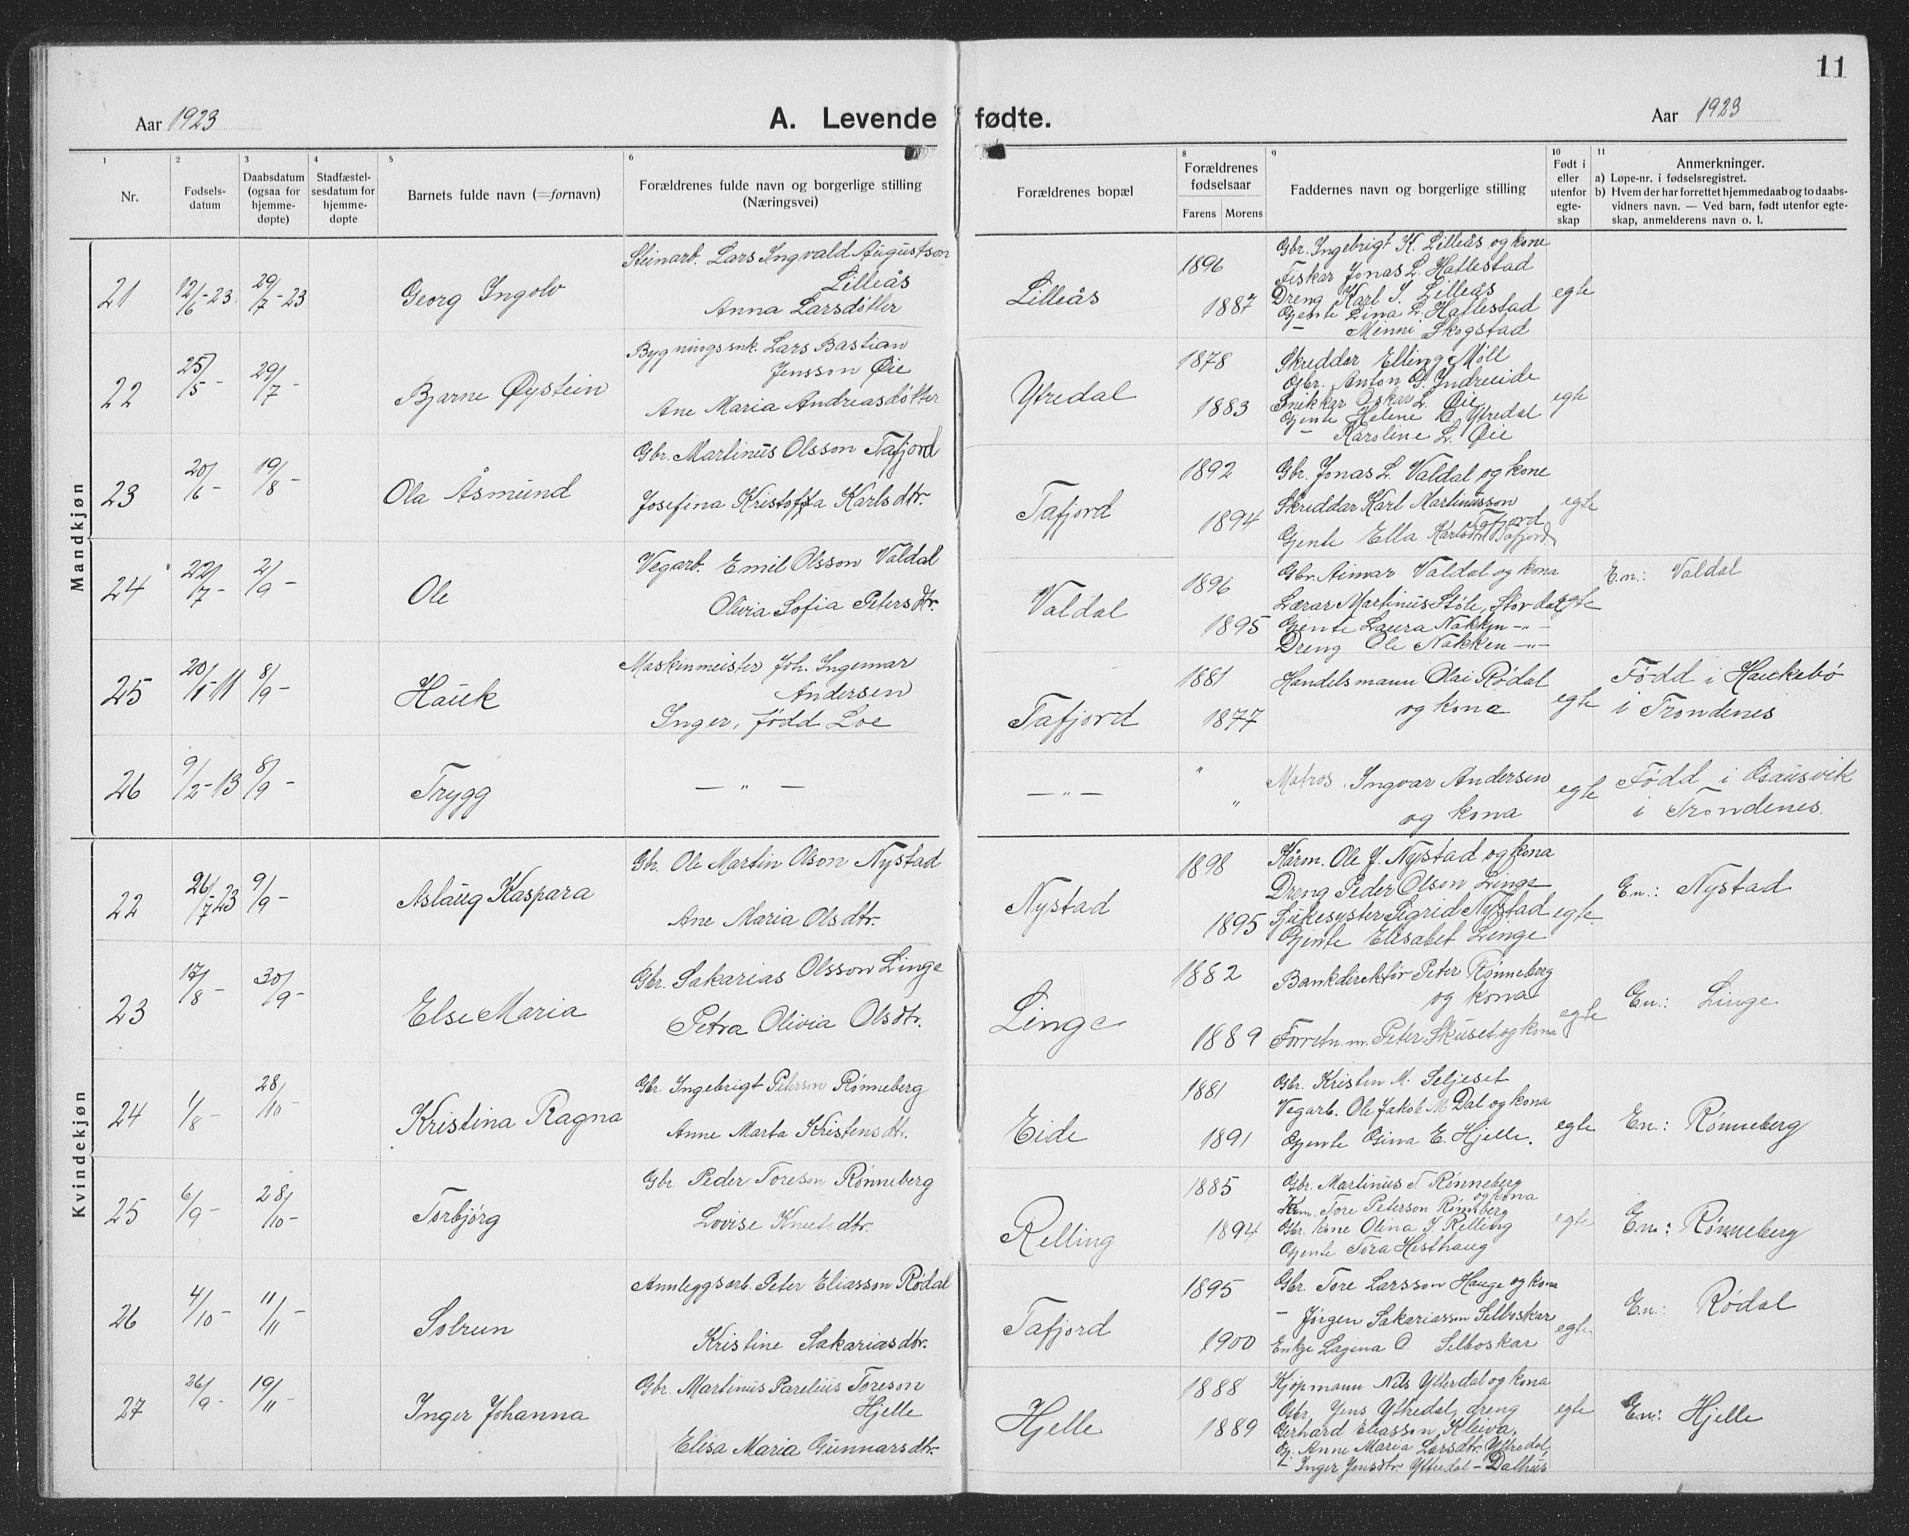 11
Aar 1923
A. Levende fødte.
Aar 1923
1
Nr.
2
Fødsels-
datum
3
Daabsdatum
(ogsaa for
hjemme-
døpte)
4
Stadfæstel-
sesdatum for
hjemme-
døpte
5
Barnets fulde navn (=fornavn)
6
Forældrenes fulde navn og borgerlige stilling
(Næringsvei)
Forældrenes bopæl
8
Forældrenes
fødselsaar
Farens Morens
9
Faddernes navn og borgerlige stilling
10
Født i
eller
utenfor
egte-
skap
11
Anmerkninger.
a) Løpe-nr. i fødselsregistret.
b) Hvem der har forrettet hjemmedaab og to daabs-
vidners navn. — Ved barn, født utenfor egte-
skap, anmelderens navn o. l.
Mandkjøn
21
12/6-23
29/7-23
Georg Ingolv
Steinarb. Lars Ingvald Augustson
Lilleås
Anna Larsdotter
Lilleås
1896
1887
Gbr. Ingebrigt K. Lilleås og kone
Fiskar Jonas L. Hatlestad
Dreng Karl I. Lilleås
Gjente Lina L. Hatlestad
— Minni Skogstad
egte
22
25/5 -
29/7 -
Bjarne Øystein
Bygningssnk. Lars Bastian
Jensson Øie
Ane Maria Andreasdotter
Ytredal
1878
1883
Skreddar Elling Møll
Gbr. Anton G. Indreeide
Snikkar Oskar L. Øie
Gjente Helene O. Ytredal
— Karoline L. Øie
egte
23
20/6 -
19/8 -
Ola Åsmund
Gbr. Martinus Olsson Tafjord
Josefina Kristoffa Karlsdtr.
Tafjord
1892
1894
Gbr. Jonas L. Valdal og kone
Skreddar Karl Martinusson
Tafjord
Gjente Ella Karlsdtr. Tafjord
egte
24
22/7 -
2/9 -
Ole
Vegarb. Emil Olsson Valdal
Olivia Sofia Petersdtr.
Valdal
1896
1895
Gbr. Aimar Valdal og kona
Lærar Martinus Støle, Stordal
Gjente Laura Nakken -"-
Dreng Ole Nakken -"-
egte
En: Valdal
25
20/1-11
8/9 -
Hauk
Maskinmeister Joh. Ingemar
Andersen
Inger, født Loe
Tafjord
1881
1877
Handelsmann Olai Rødal
og kona
egte
Fødd i Haukebø
i Trondenes
26
9/2-13
8/9 -
Trygg
— " —
— " —
"
"
Matros Ingvar Andersen
og kona
egte
Fødd i
i Trondenes.
Kvindekjøn
22
26/7 23
9/9 -
Aslaug Kaspara
Gbr. Ole Martin Olson Nystad
Ane Maria Olsdtr.
Nystad
1898
1895
Kårm. Ole J. Nystad og kona
Dreng Peder Olson Linge
Sjukesyster Sigrid Nystad
Gjente Elisabet Linge
egte
En: Nystad
23
17/8 -
30/9 -
Else Maria
Gbr. Sakarias Olsson Linge
Petra Olivia Olsdtr.
Linge
1882
1889
Bankdirektør Peter Rønneberg
og kona
Forretn.m. Peter Skuset og kona
egte
En: Linge
24
1/8 -
28/10 -
Kristina Ragna
Gbr. Ingebrigt Peterson Rønneberg
Anne Marta Kristensdtr.
Eide
1881
1891
Gbr. Kristen M. Seljeset
Vegarb. Ole Jakob M. Dal og kona
Gjente Osina E. Hjelle.
egte
En: Rønneberg
25
6/9 -
28/10 -
Torbjørg
Gbr. Peder Toreson Rønneberg
Lovise Knutsdtr.
Relling
1885
1894
Gbr. Martinus T. Rønneberg
og kona
Krm. Tore Peterson Rønneberg
Gbr. kone Olina J. Relling
Gjente Tora Hesthaug
egte
En: Rønneberg
26
4/10 -
11/11 -
Solrun
Annleggsarb. Peter Eliasson Rødal
Kristine Sakariasdtr.
Tafjord
1895
1900
Gbr. Tore Larsson Hauge og kona
— Jørgen Sakariasson Selboskar
Enkje Lagina O. Selboskar
egte
En: Rødal
27
26/9 -
19/11 -
Inger Johanna
Gbr. Martinus Parelius Toreson
Hjelle
Elisa Maria Gunnarsdtr.
Hjelle
1888
1889
Kjøpmann Nils Ytterdal og kona
Gbr. Jens Ytredal, dreng
Gerhard Eliasson Kleiva,
Gj. Anne Maria Larsdtr. Ytredal,
— Inger Jensdtr. Ytredal - Dalhus
egte
En: Hjelle